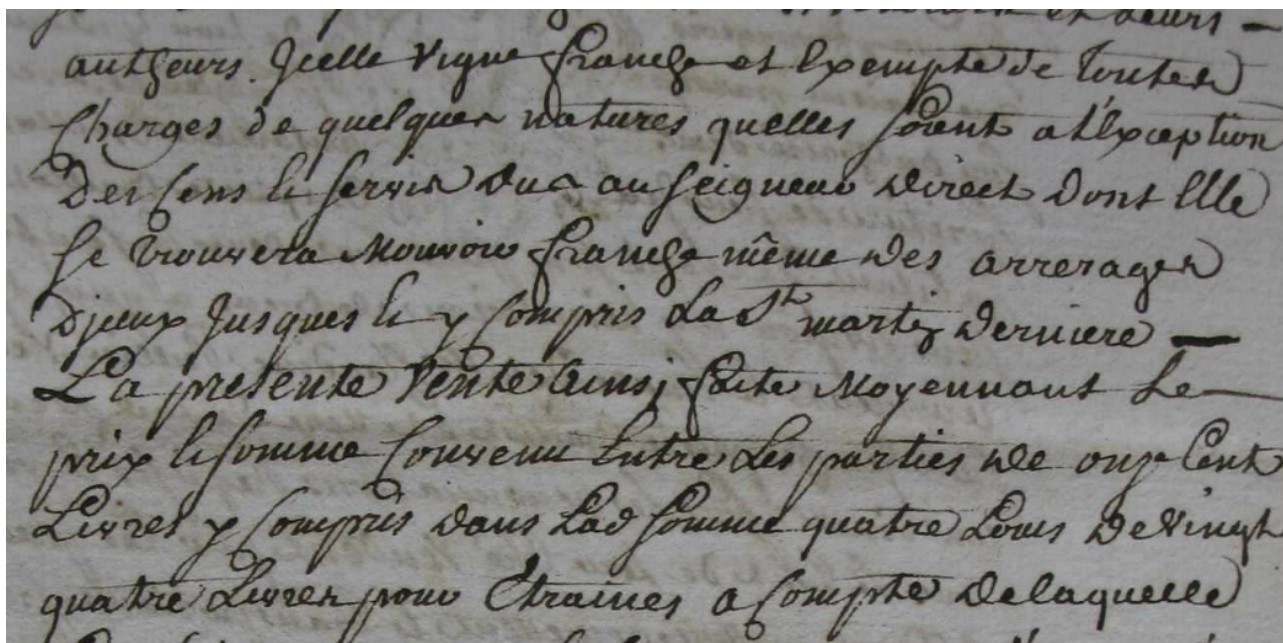 et Leurs —
autheurs. Jcelle Vigne franche et Exempte de Toutes
Charges de quelques natures quelles soient a l'Exception
Des Cens & servis Dus au seigneur Direct dont Elle
se trouvera Mouvoir franche même des arrerages
D'jceux jusques & y Compris La St martin Derniere —
La presente Vente ainsj faite Moyennant Le —
prix & somme Convenu Entre Les parties de onze Cent
Livres y Compris dans Lad somme quatre Louis De Vingt
quatre Livres pour Etraines a Compte De laquelle